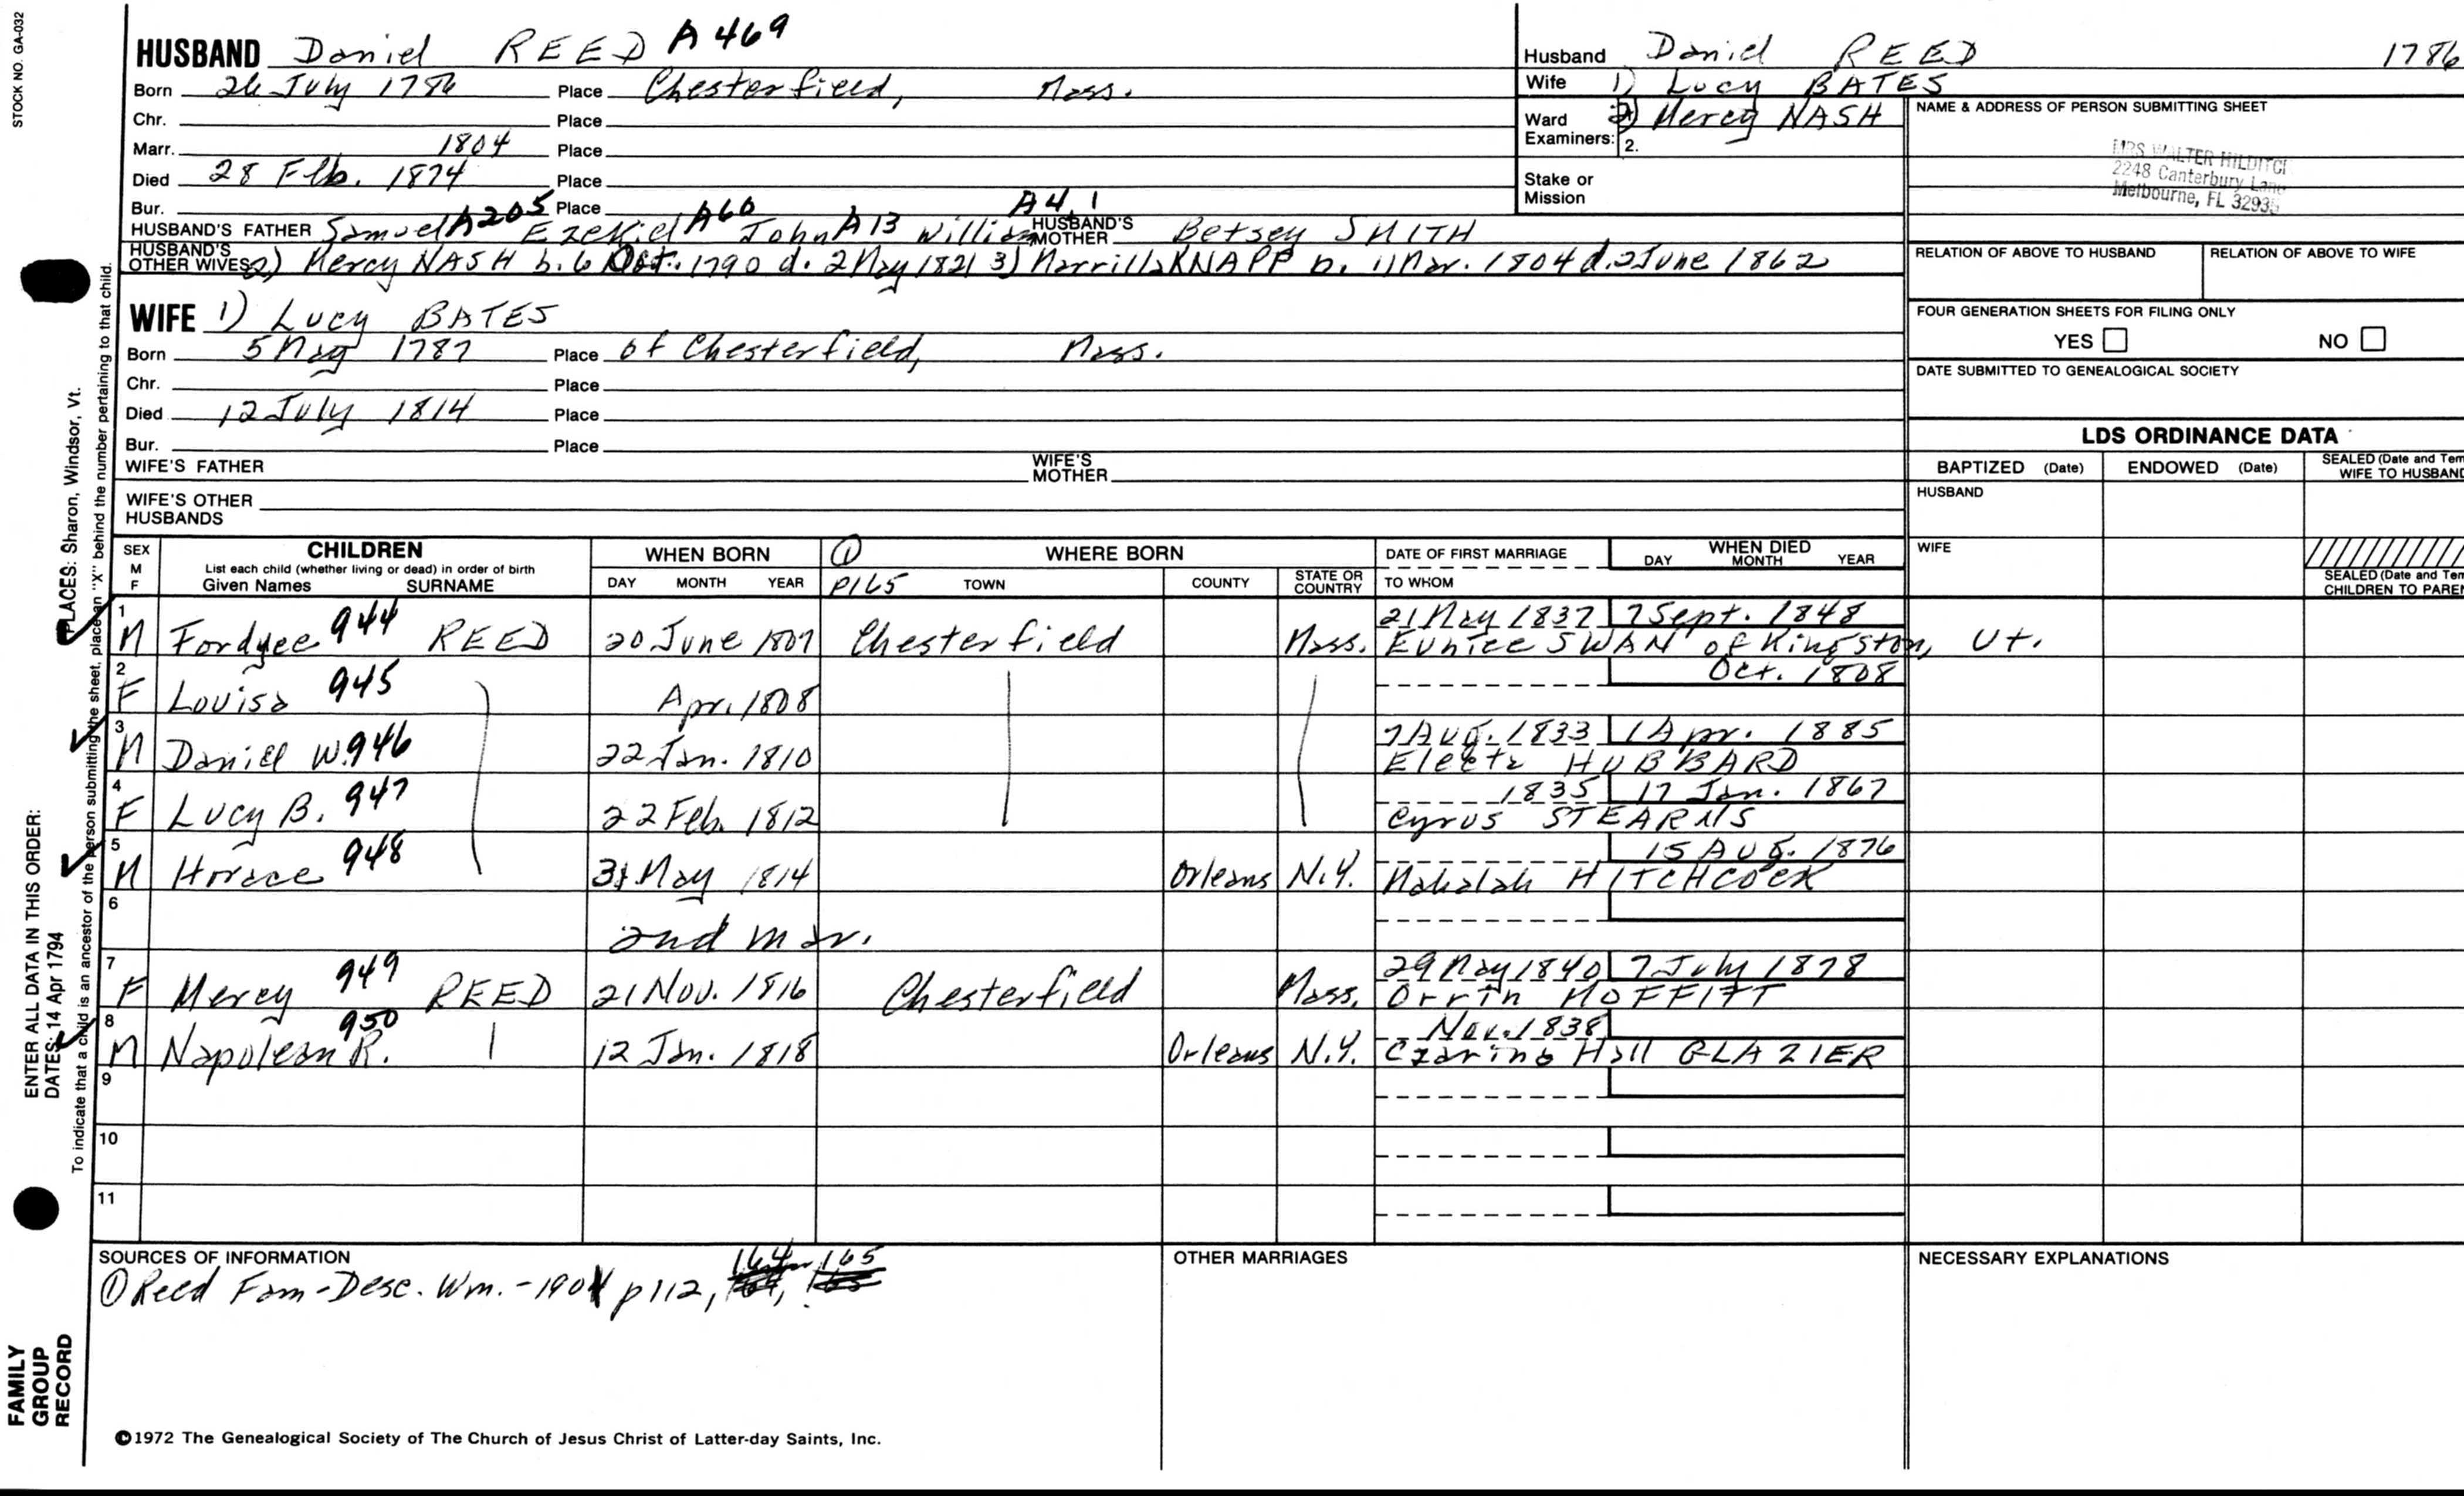 STOCK NO. GA-032
HUSBAND Daniel REED A469
Born 26 July 1786 Place Chesterfield, Mass.
Chr. Place
Marr. 1804 Place
Died 28 Feb. 1874 Place
Bur. Place
HUSBAND'S FATHER Samuel A205 Ezekiel A60 John A13 William A4, 1 HUSBAND'S MOTHER Betsey SMITH
HUSBAND'S OTHER WIVES 2) Mercy NASH b. 6 Oct. 1790 d. 2 May 1821 3) Marrilla KNAPP b. 11 Mar. 1804 d. 2 June 1862
WIFE 1) Lucy BATES
Born 5 May 1787 Place of Chesterfield, Mass.
Chr. Place
Died 12 July 1814 Place
Bur. Place
WIFE'S FATHER WIFE'S MOTHER
WIFE'S OTHER HUSBANDS
Husband Daniel REED 1786
Wife 1) Lucy BATES
Ward Examiners: 2) Mercy NASH
2.
Stake or Mission
NAME & ADDRESS OF PERSON SUBMITTING SHEET
MRS WALTER HILDITCH
2248 Canterbury Lane
Melbourne, FL 32935
RELATION OF ABOVE TO HUSBAND RELATION OF ABOVE TO WIFE
FOUR GENERATION SHEETS FOR FILING ONLY
YES NO
DATE SUBMITTED TO GENEALOGICAL SOCIETY
LDS ORDINANCE DATA
BAPTIZED (Date) ENDOWED (Date) SEALED (Date and Tem
WIFE TO HUSBAND
HUSBAND
WIFE
SEALED (Date and Tem
CHILDREN TO PAREN
SEX M F CHILDREN
List each child (whether living or dead) in order of birth
Given Names SURNAME
WHEN BORN
DAY MONTH YEAR
① WHERE BORN
P165 TOWN COUNTY STATE OR COUNTRY
DATE OF FIRST MARRIAGE
TO WHOM
WHEN DIED
DAY MONTH YEAR
1 21 May 1837 7 Sept. 1848
M Fordyce 944 REED 20 June 1807 Chesterfield Mass. Eunice SWAN of Kingston, Vt.
2 Oct. 1808
F Louisa 945 Apr. 1808
3 7 Aug. 1833 1 Apr. 1885
M Daniel W. 946 22 Jan. 1810 Electa HUBBARD
4 1835 17 Jan. 1867
F Lucy B. 947 22 Feb. 1812 Cyrus STEARNS
5 15 Aug. 1876
M Horace 948 31 May 1814 Orleans N.Y. Mahalah HITCHCOCK
6
2nd mar.
7 29 May 1840 7 July 1878
F Mercy 949 REED 21 Nov. 1816 Chesterfield Mass. Orrin MOFFITT
8 Nov. 1838
M Napolean R. 950 12 Jan. 1818 Orleans N.Y. Czarina Hall GLAZIER
9
10
11
SOURCES OF INFORMATION
① Reed Fam - Desc. Wm. - 1901 p112, 164, 165
OTHER MARRIAGES
NECESSARY EXPLANATIONS
©1972 The Genealogical Society of The Church of Jesus Christ of Latter-day Saints, Inc.
ENTER ALL DATA IN THIS ORDER:
DATES: 14 Apr 1794 PLACES: Sharon, Windsor, Vt.
To indicate that a child is an ancestor of the person submitting the sheet, place an "X" behind the number pertaining to that child.
FAMILY
GROUP
RECORD